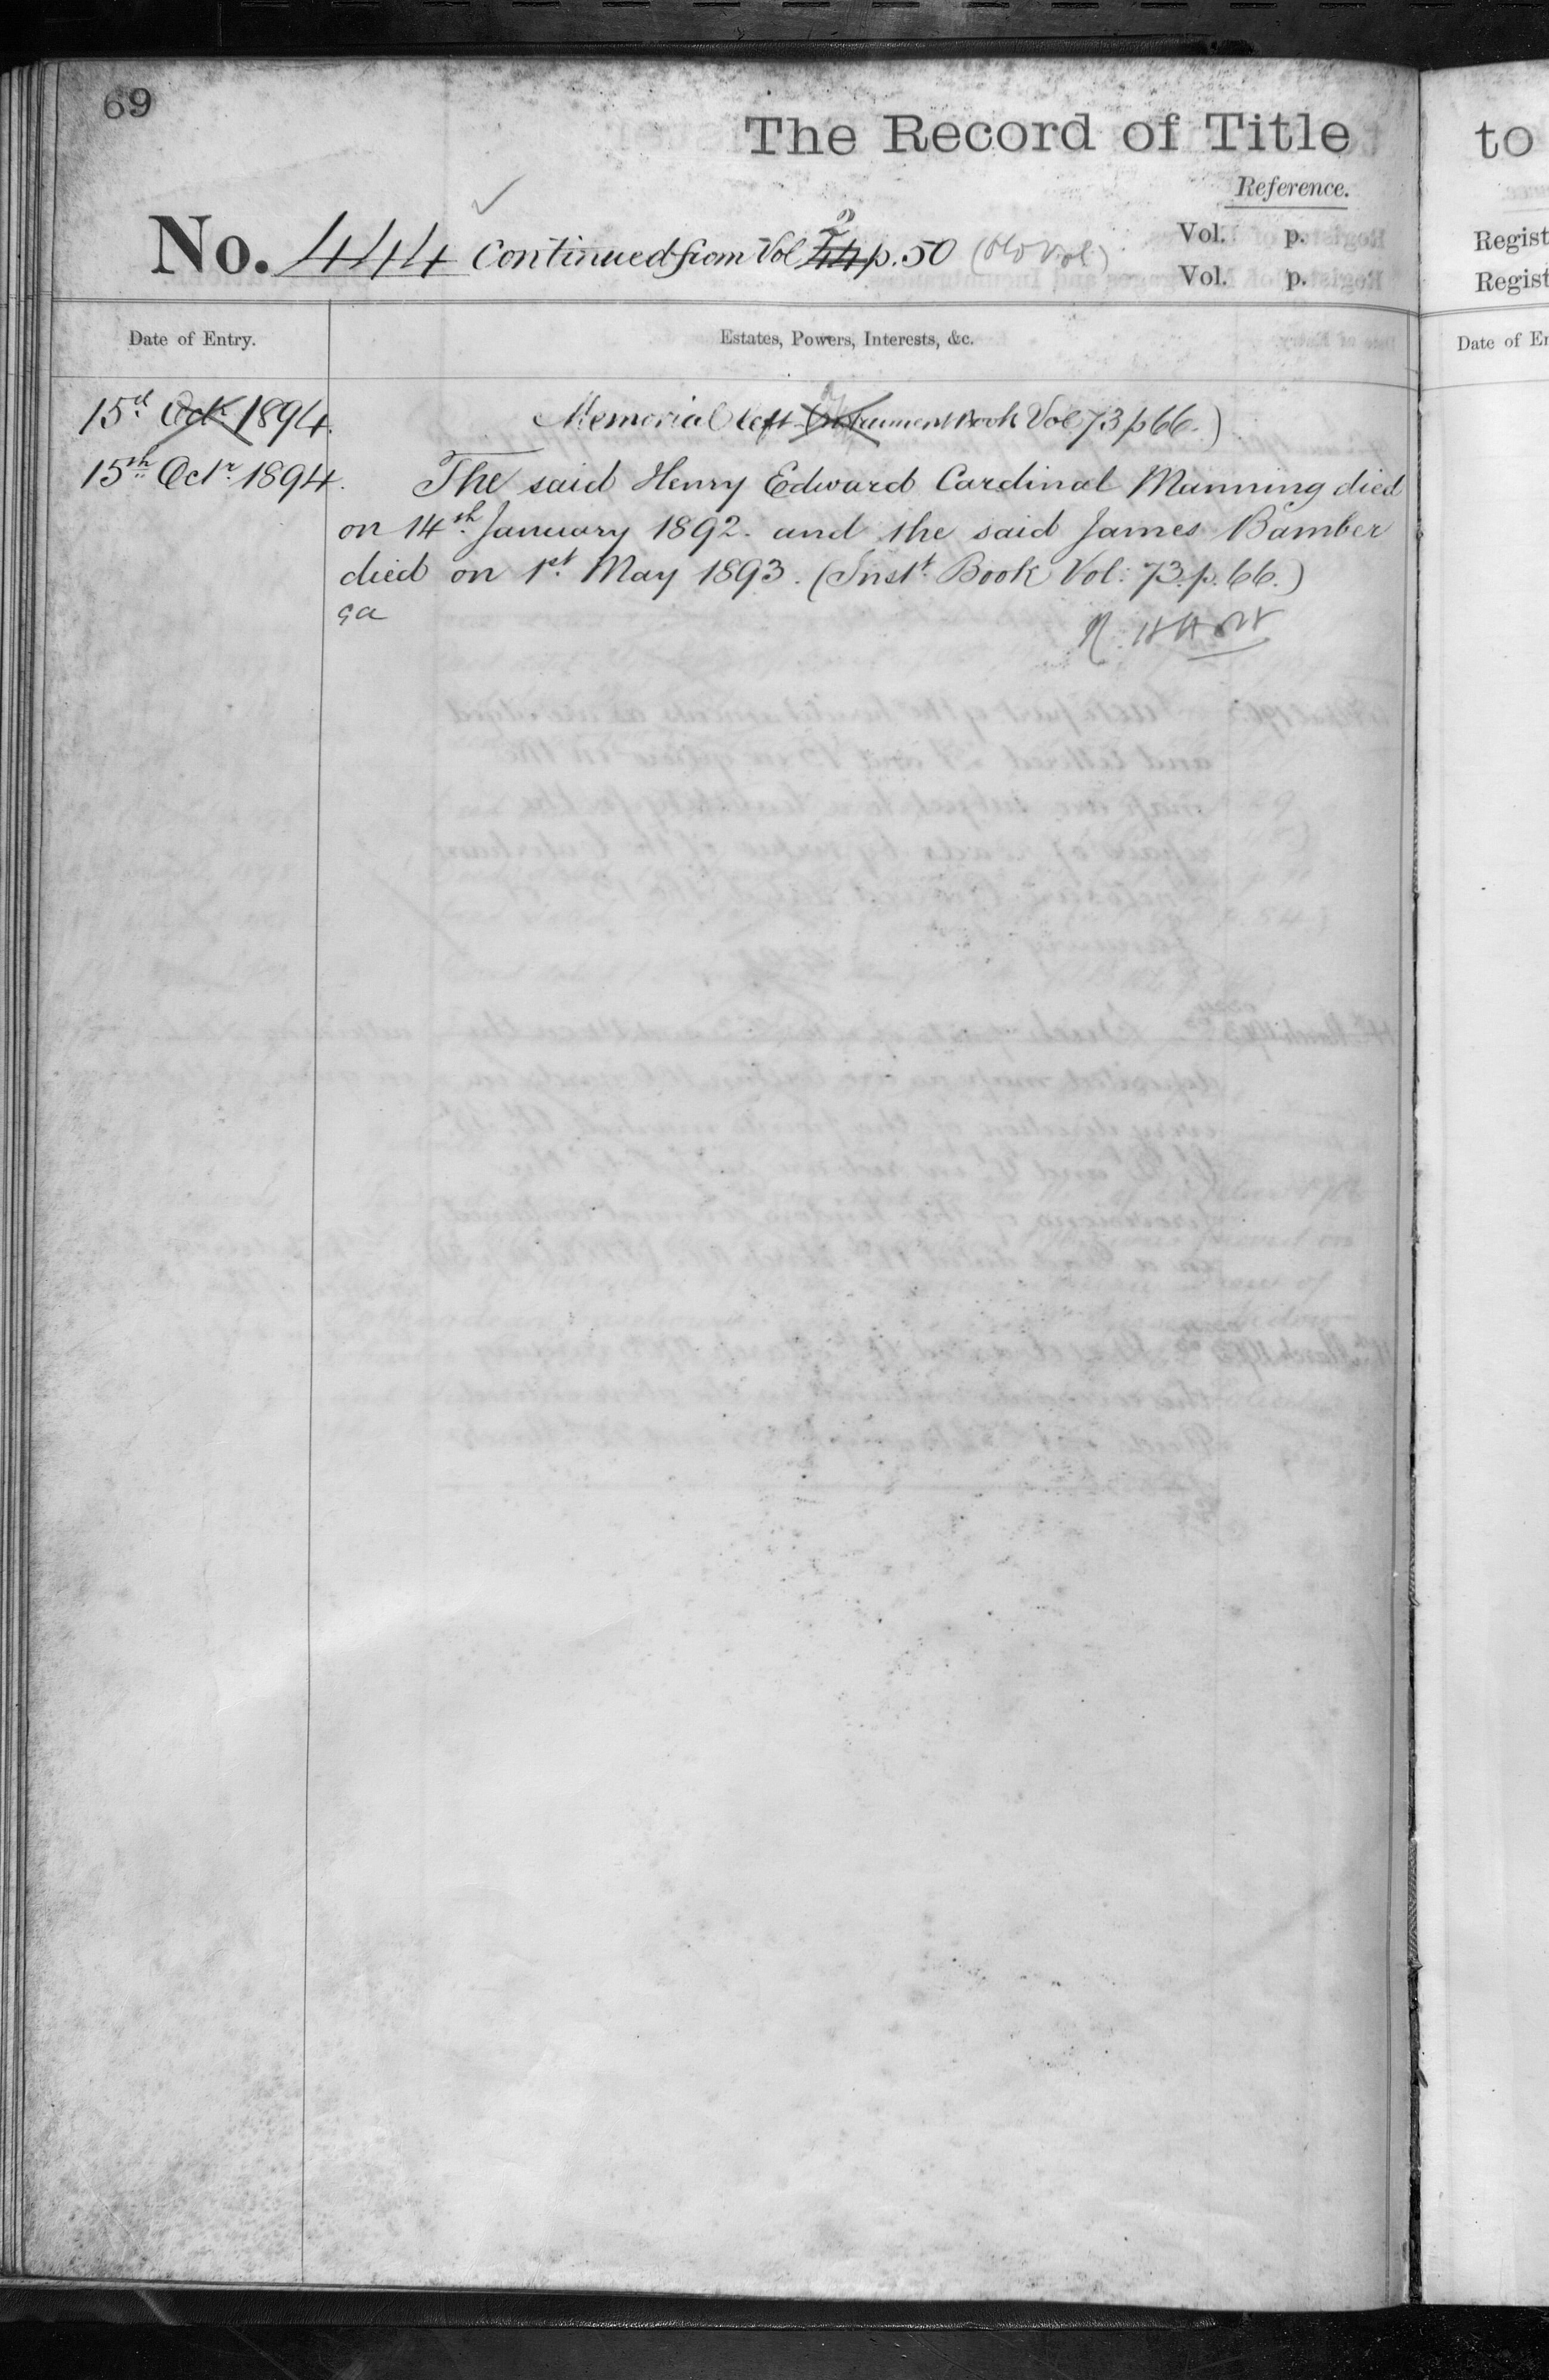 69
The Record of Title
Reference.
No. 444 Continued from Vol 2 44 p. 50 (Old Vol)
Vol. p.
Vol. p.
Date of Entry.
Estates, Powers, Interests, &c.
15th Oct. 1894. Memorial left (Instrument Book Vol 73 p 66.)
15th Octr. 1894. The said Henry Edward Cardinal Manning died
on 14th January 1892. and the said James Bamber
died on 1st May 1893. (Inst. Book Vol: 73. p. 66.)
ga
to
Regist
Regist
Date of En